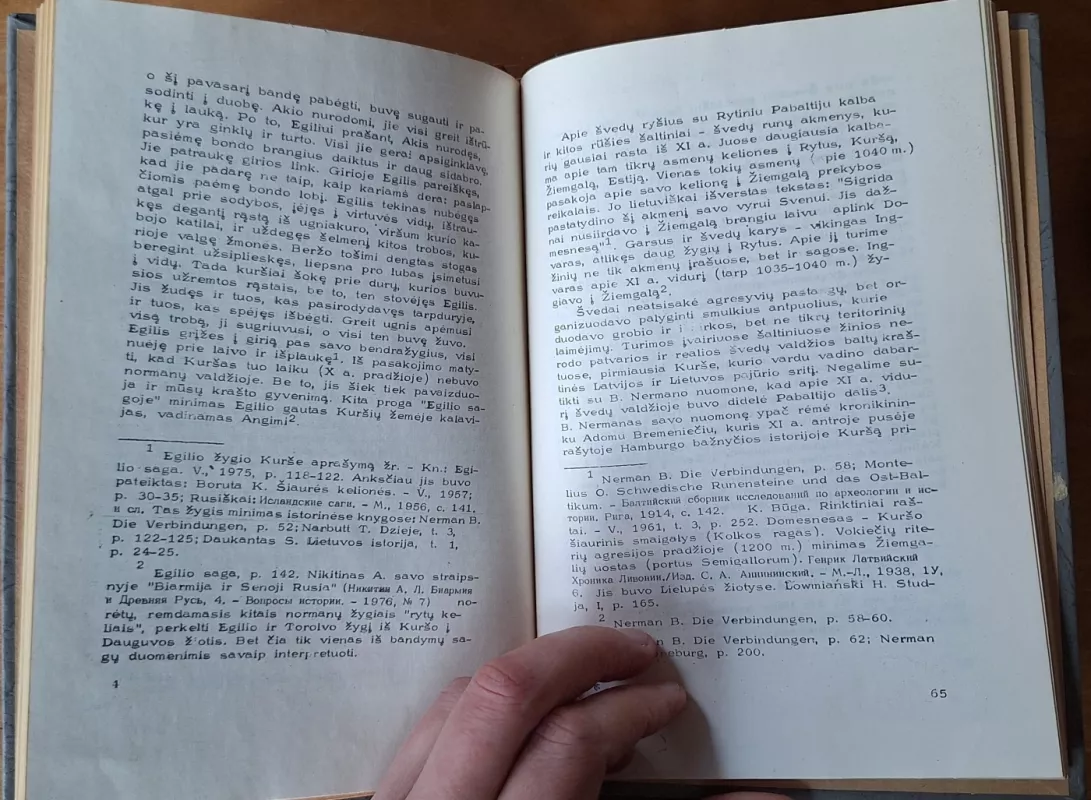 o šį pavasarį bandę pabėgti, buvę sugauti ir pa-
sodinti į duobę. Akio nurodomi, jie visi greit ištrū-
kę į lauką. Po to, Egiliui prašant, Akis nurodęs,
kur yra ginklų ir turto. Visi jie gerai apsiginklavę,
pasiėmę bondo brangius daiktus ir daug sidabro.
Jie patraukę girios link. Girioje Egilis pareiškęs,
kad jie padarę ne taip, kaip kariams dera: paslap-
čiomis paėmę bondo lobį. Egilis tekinas nubėgęs
atgal prie sodybos, įėjęs į virtuvės vidų, ištrau-
kęs degantį rąstą iš ugniakuro, viršum kurio ka-
bojo katilai, ir uždegęs šelmenį kitos trobos, ku-
rioje valgę žmonės. Beržo tošimi dengtas stogas
beregint užsiplieskęs, liepsna pro lubas įsimetusi
į vidų. Tada kuršiai šokę prie durų, kurios buvu-
sios užremtos rąstais, be to, ten stovėjęs Egilis.
Jis žudęs ir tuos, kas pasirodydavęs tarpduryje,
ir tuos, kas spėjęs išbėgti. Greit ugnis apėmusi
visą trobą, ji sugriuvusi, o visi ten buvę žuvo.
Egilis grįžęs į girią pas savo bendražygius, visi
nuėję prie laivo ir išplaukę1. Iš pasakojimo maty-
ti, kad Kuršas tuo laiku (X a. pradžioje) nebuvo
normanų valdžioje. Be to, jis šiek tiek pavaizduo-
ja ir mūsų krašto gyvenimą. Kita proga "Egilio sa-
goje" minimas Egilio gautas Kuršių žemėje kalavi-
jas, vadinamas Angimi2.
1 Egilio žygio Kurše aprašymą žr. - Kn.: Egi-
lio saga. V., 1975, p. 118-122. Anksčiau jis buvo
pateiktas: Boruta K. Šiaurės kelionės. - V., 1957;
p. 30-35; Rusiškai: Исландские саги, - М., 1956, с. 141,
и сл. Tas žygis minimas istorinėse knygose: Nerman B.
Die Verbindungen, p. 52; Narbutt T. Dzieje, t. 3,
p. 122-125; Daukantas S. Lietuvos istorija, t. 1,
p. 24-25.
2 Egilio saga, p. 142. Nikitinas A. savo straips-
nyje "Biarmija ir Senoji Rusia" (Никитин А, Л, Биармия
и Древняя Русь, 4. - Вопросы истории. - 1976, № 7) no-
rėtų, remdamasis kitais normanų žygiais "rytų ke-
liais", perkelti Egilio ir Torolvo žygį iš Kuršo į
Dauguvos žiotis. Bet čia tik vienas iš bandymų sa-
gų duomenimis savaip interpretuoti.
4
Apie švedų ryšius su Rytiniu Pabaltiju kalba
ir kitos rūšies šaltiniai - švedų runų akmenys, ku-
rių gausiai rasta iš XI a. Juose daugiausia kalba-
ma apie tam tikrų asmenų keliones į Rytus, Kuršą,
Žiemgalą, Estiją. Vienas tokių asmenų ( pie 1040 m.)
pasakoja apie savo kelionę į Žiemgalą prekybos
reikalais. Jo lietuviškai išverstas tekstas: "Sigrida
pastatydino šį akmenį savo vyrui Svenui. Jis daž-
nai nusiirdavo į Žiemgalą brangiu laivu aplink Do-
mesnesą"1. Garsus ir švedų karys - vikingas Ing-
varas, atlikęs daug žygių į Rytus. Apie jį turime
žinių ne tik akmenų įrašuose, bet ir sagose. Ing-
varas apie XI a. vidurį (tarp 1035-1040 m.) žy-
giavo į Žiemgalą2.
Švedai neatsisakė agresyvių pasta gų, bet or-
ganizuodavo palyginti smulkius antpuolius, kurie
duodavo grobio ir i rkos, bet ne tikrų teritorinių
laimėjimų. Turimos įvairiuose šaltiniuose žinios ne-
rodo patvarios ir realios švedų valdžios baltų kraš-
tuose, pirmiausia Kurše, kurio vardu vadino dabar-
tinės Latvijos ir Lietuvos pajūrio sritį. Negalime su-
tikti su B. Nermano nuomone, kad apie XI a. vidu-
rį švedų valdžioje buvo didelė Pabaltijo dalis3.
B. Nermanas savo nuomonę ypač rėmė kronikinin-
ku Adomu Bremeniečiu, kuris XI a. antroje pusėje
rašytoje Hamburgo bažnyčios istorijoje Kuršą pri-
1 Nerman B. Die Verbindungen, p. 58; Monte-
lius O. Schwedische Runensteine und das Ost-Bal-
tikum. - Балтийский сборник исследований по археологии и ис-
тории. Рига, 1914, с. 142. K. Būga. Rinktiniai raš-
tai. - V., 1961, t. 3, p. 252. Domesnesas - Kuršo
šiaurinis smaigalys (Kolkos ragas). Vokiečių rite-
rių agresijos pradžioje (1200 m.) minimas Žiemga-
lių uostas (portus Semigallorum). Генрик Латвийский
Хроника Ливонии./Изд. С. А. Аннинский. - М.-Л., 1938, 1У,
6. Jis buvo Lielupės žiotyse. Łowmiański H. Stud-
ja, I, p. 165.
2 Nerman B. Die Verbindungen, p. 58-60.
B. Die Verbindungen, p. 62; Nerman
neburg, p. 200.
65